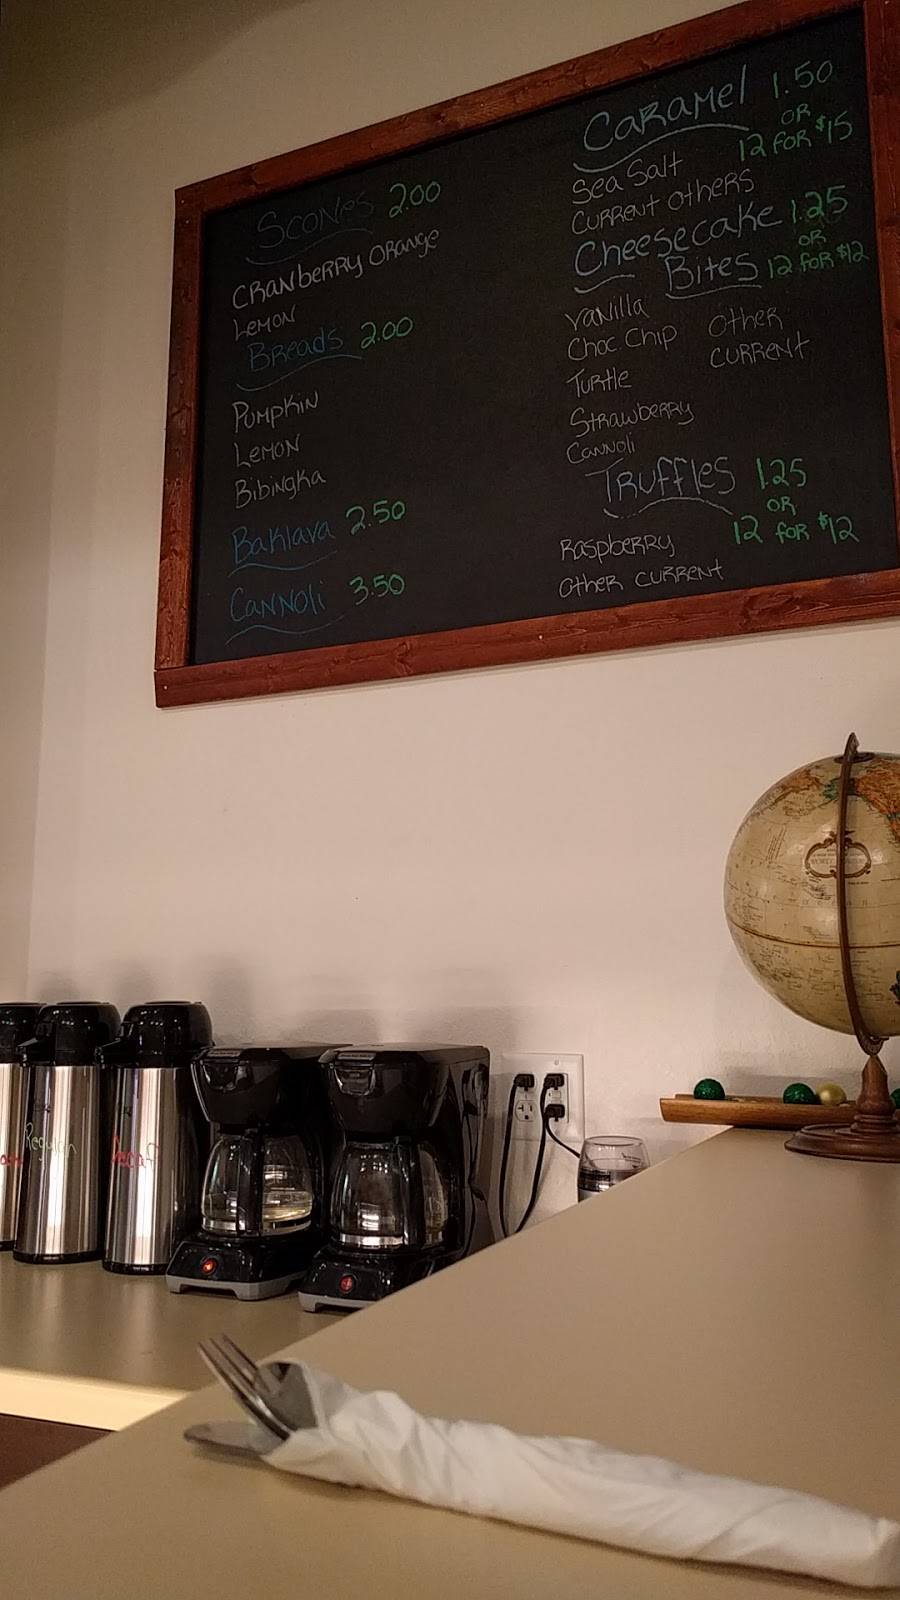 Scones 2.00
Cranberry Orange
Lemon
Breads 2.00
Pumpkin
Lemon
Bibingka
Baklava 2.50
Cannoli 3.50
Caramel 1.50
OR
12 for $15
Sea Salt
Current Others
Cheesecake 1.25
Bites
OR
12 for $12
Vanilla
Choc. Chip
Turtle
Strawberry
Cannoli
Other
Current
Truffles 1.25
OR
12 for $12
Raspberry
Other Current
Regular
Decaf